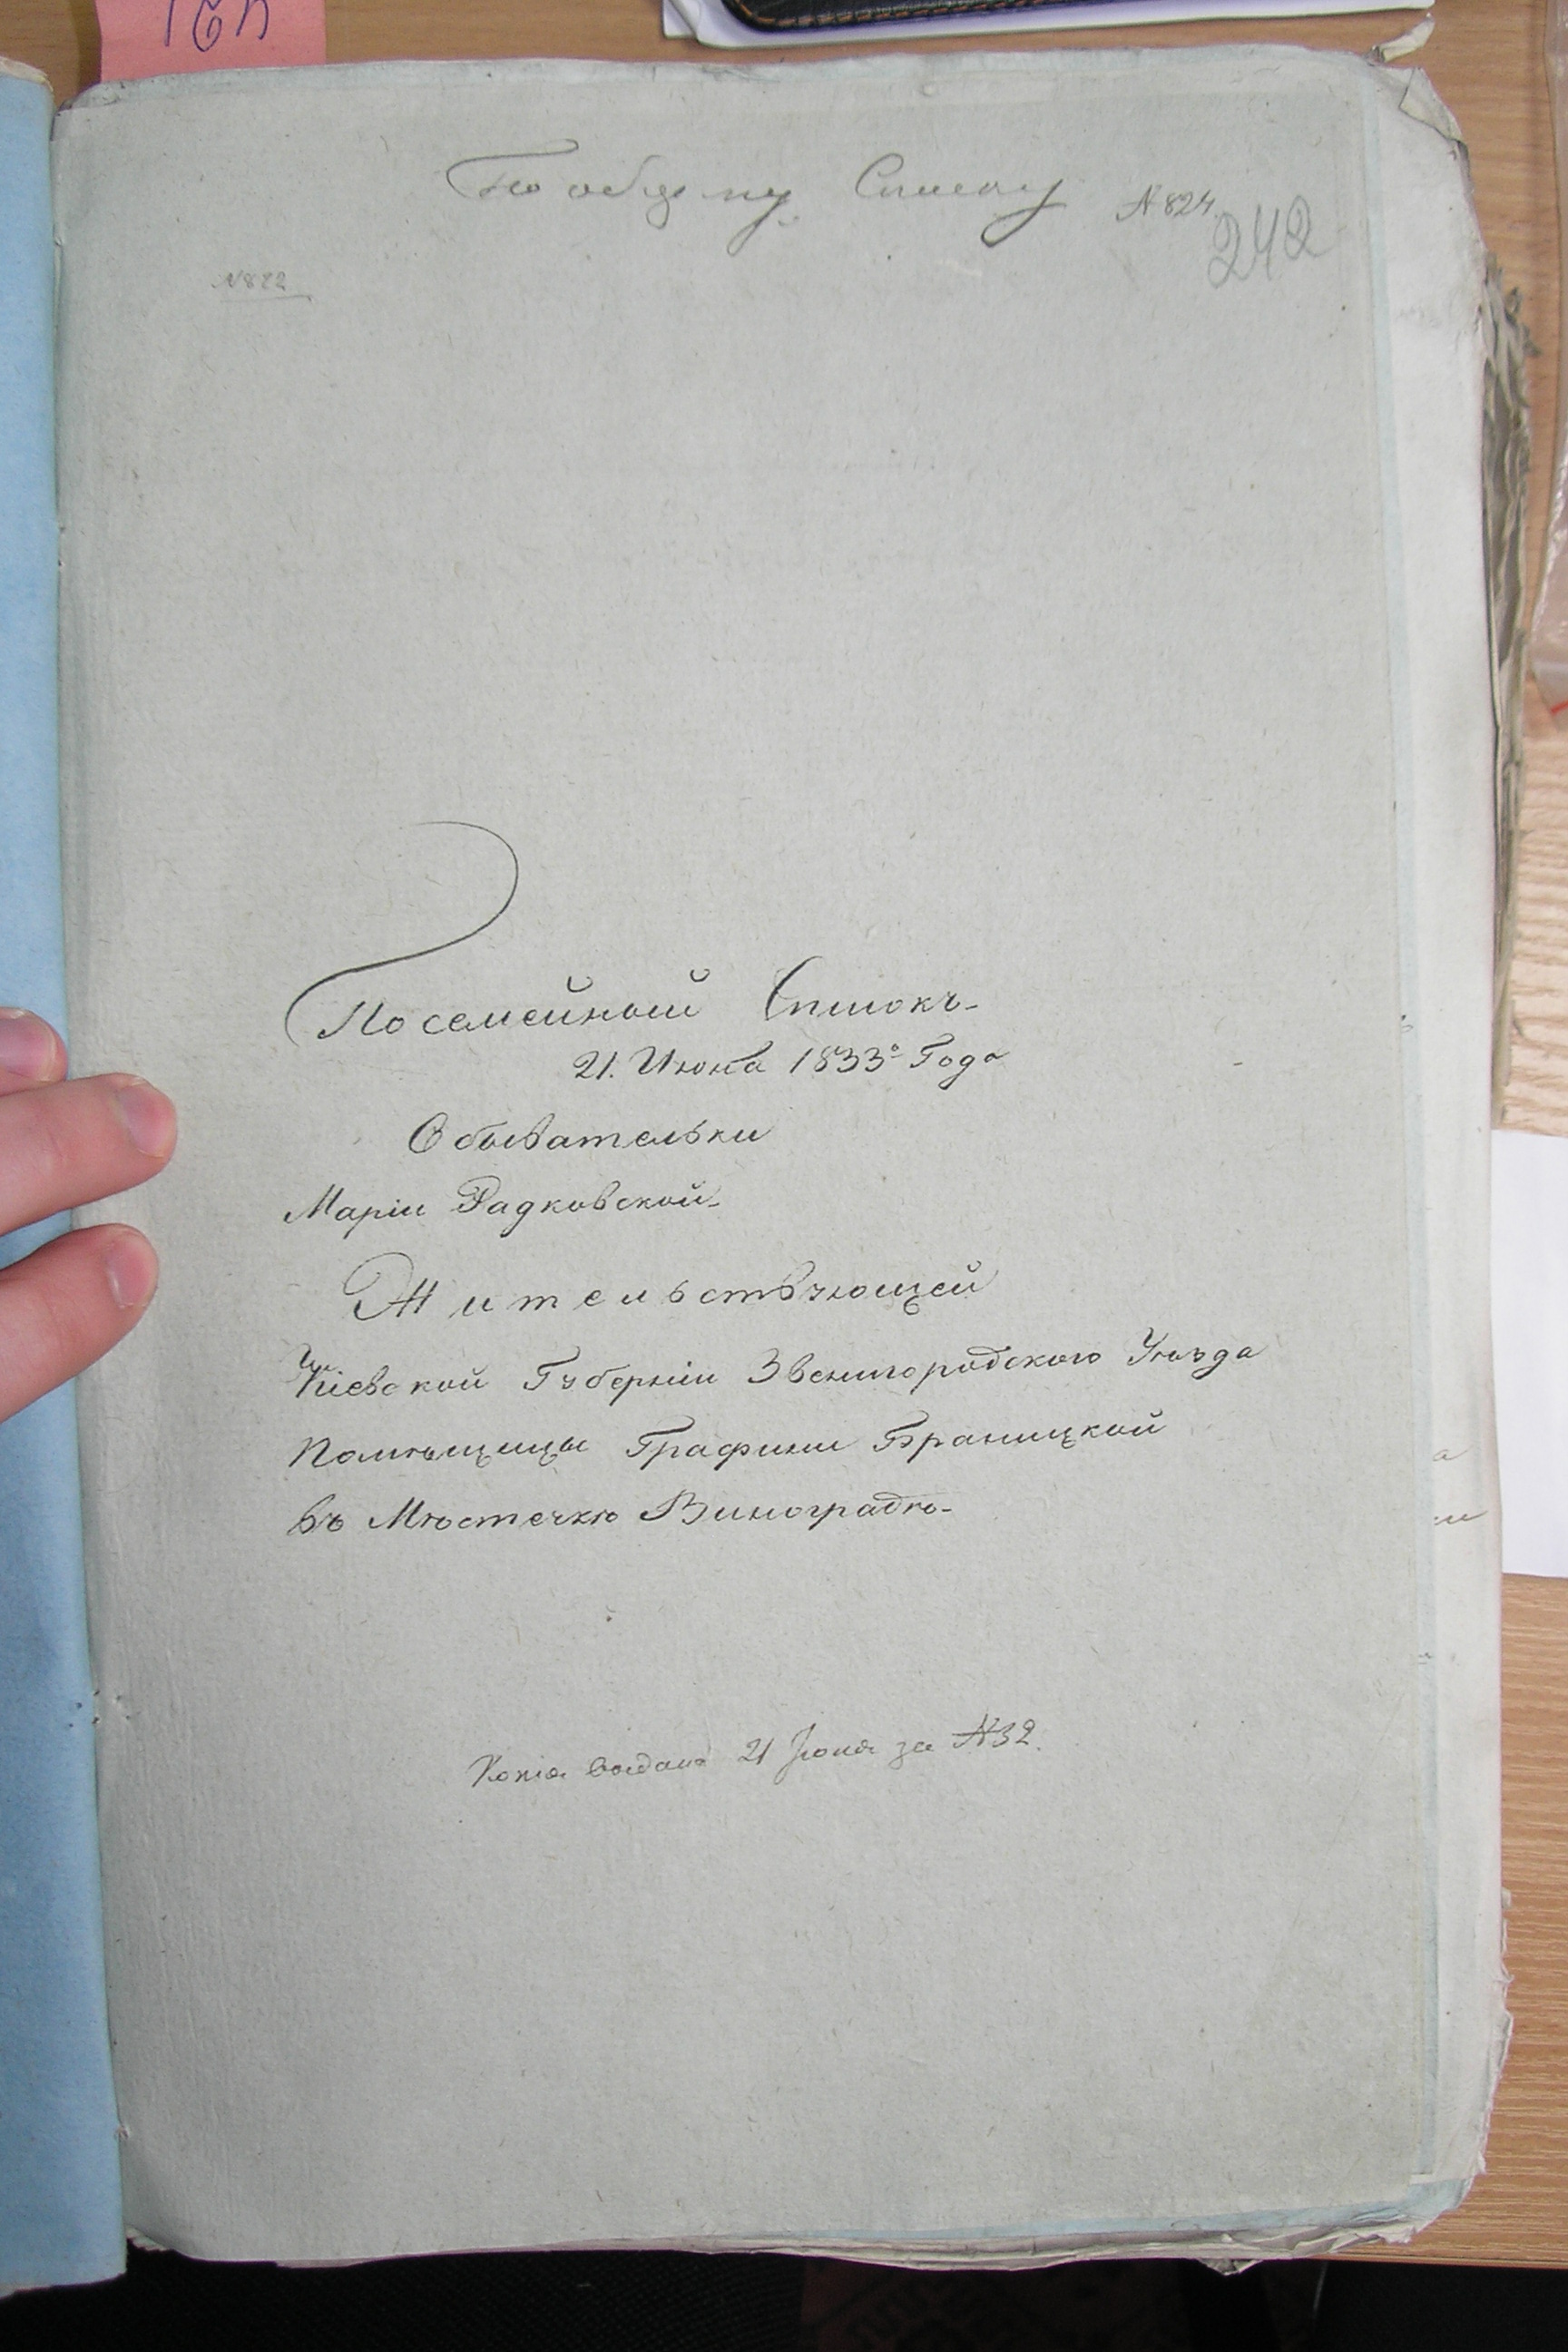 По общему Списку N 824
242
N 822
Посемейный Списокъ
21. Июня 1833º Года
Обывательки
Маріи Радковской
Жительствующей
Кіевской Губерніи Звенигородского Уѣзда
Помѣщицы Графини Браницкой
въ Мѣстечкѣ Виноградѣ
Копія выдана 21 Іюня за N 32.